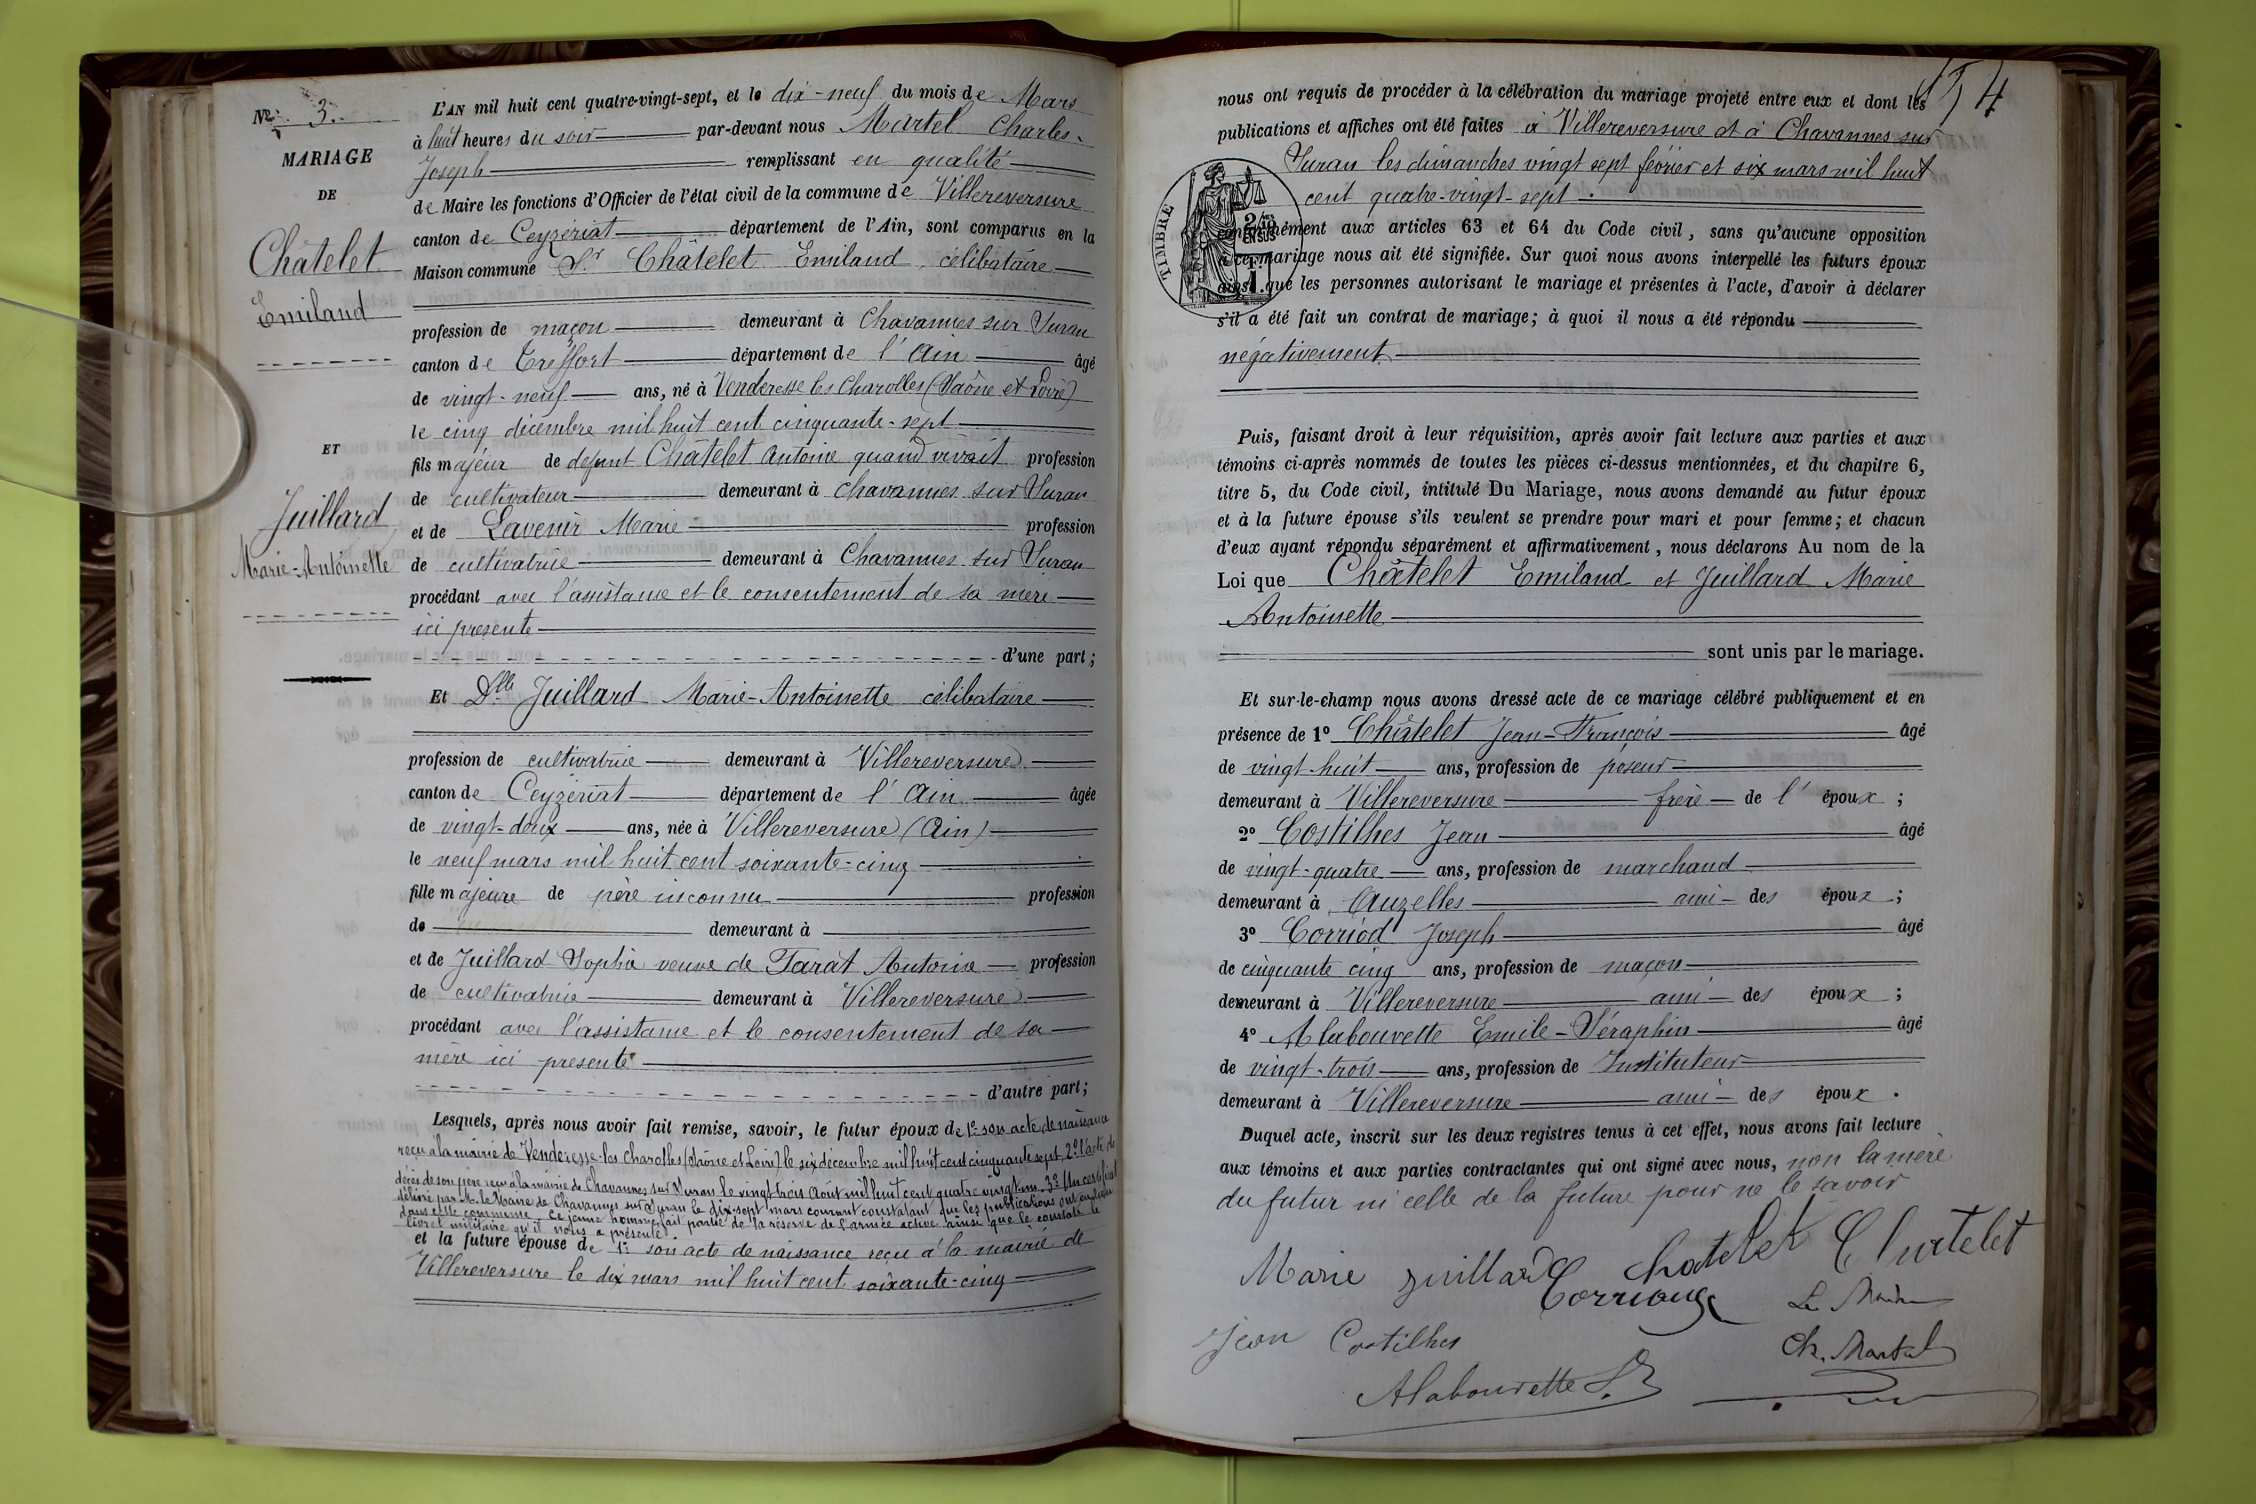 N° 3.
MARIAGE
DE
Châtelet
Emiland
ET
Juillard
Marie-Antoinette
L'AN mil huit cent quatre-vingt-sept, et le dix-neuf du mois de Mars
à huit heures du soir par-devant nous Martel Charles-
Joseph remplissant en qualité
de Maire les fonctions d'Officier de l'état civil de la commune de Villereversure
canton de Ceyzériat département de l'Ain, sont comparus en la
Maison commune Sr Châtelet Emiland, célibataire
profession de maçon demeurant à Chavannes sur Suran
canton de Treffort département de l'Ain âgé
de vingt-neuf ans, né à Venderesse les Charolles (Saône et Loire)
le cinq décembre mil huit cent cinquante-sept
fils majeur de defunt Châtelet Antoine quand vivait profession
de cultivateur demeurant à Chavannes sur Suran
et de Lavenir Marie profession
de cultivatrice demeurant à Chavannes sur Suran
procédant avec l'assistance et le consentement de sa mère
ici presente
d'une part;
Et Dlle Juillard Marie-Antoinette célibataire
profession de cultivatrice demeurant à Villereversure
canton de Ceyzériat département de l'Ain âgée
de vingt-deux ans, née à Villereversure (Ain)
le neuf mars mil huit cent soixante-cinq
fille majeure de père inconnu profession
de demeurant à
et de Juillard Sophie veuve de Tarat Antoine profession
de cultivatrice demeurant à Villereversure
procédant avec l'assistance et le consentement de sa
mère ici presente
d'autre part;
Lesquels, après nous avoir fait remise, savoir, le futur époux de 1° son acte de naissance
reçu à la mairie de Venderesse-les Charolles (Saône et Loire) le six décembre mil huit cent cinquante sept, 2° l'acte de
décès de son père reçu à la mairie de Chavannes sur Suran le vingt trois août mil huit cent quatre vingt un. 3° Un certificat
délivré par M. le Maire de Chavannes sur Suran le dix-sept mars courant constatant que les publications ont eu lieu
dans cette commune. Ce jeune homme fait partie de la réserve de l'armée active ainsi que le constate le
livret militaire qu'il nous a présenté.
et la future épouse de 1° son acte de naissance reçu à la mairie de
Villereversure le dix mars mil huit cent soixante-cinq
54
nous ont requis de procéder à la célébration du mariage projeté entre eux et dont les
publications et affiches ont été faites à Villereversure et à Chavannes sur
Suran les dimanches vingt sept février et six mars mil huit
cent quatre-vingt-sept.
TIMBRE
2/10ES
EN SUS
1F.
conformément aux articles 63 et 64 du Code civil, sans qu'aucune opposition
à ce mariage nous ait été signifiée. Sur quoi nous avons interpellé les futurs époux
ainsi que les personnes autorisant le mariage et présentes à l'acte, d'avoir à déclarer
s'il a été fait un contrat de mariage; à quoi il nous a été répondu
négativement
Puis, faisant droit à leur réquisition, après avoir fait lecture aux parties et aux
témoins ci-après nommés de toutes les pièces ci-dessus mentionnées, et du chapitre 6,
titre 5, du Code civil, intitulé Du Mariage, nous avons demandé au futur époux
et à la future épouse s'ils veulent se prendre pour mari et pour femme; et chacun
d'eux ayant répondu séparément et affirmativement, nous déclarons Au nom de la
Loi que Châtelet Emiland et Juillard Marie
Antoinette
sont unis par le mariage.
Et sur-le-champ nous avons dressé acte de ce mariage célébré publiquement et en
présence de 1° Châtelet Jean-François âgé
de vingt-huit ans, profession de poseur
demeurant à Villereversure frère de l'époux;
2° Costilhes Jean âgé
de vingt-quatre ans, profession de marchand
demeurant à Auzelles ami des époux;
3° Corriod Joseph âgé
de cinquante cinq ans, profession de maçon
demeurant à Villereversure ami des époux;
4° Alabouvette Emile-Séraphin âgé
de vingt-trois ans, profession de Instituteur
demeurant à Villereversure ami des époux.
Duquel acte, inscrit sur les deux registres tenus à cet effet, nous avons fait lecture
aux témoins et aux parties contractantes qui ont signé avec nous, non la mère
du futur ni celle de la future pour ne le savoir
Marie juillard Chatelet Chatelet
Le Maire
Jean Costilhes
Ch. Martel
Alabouvette